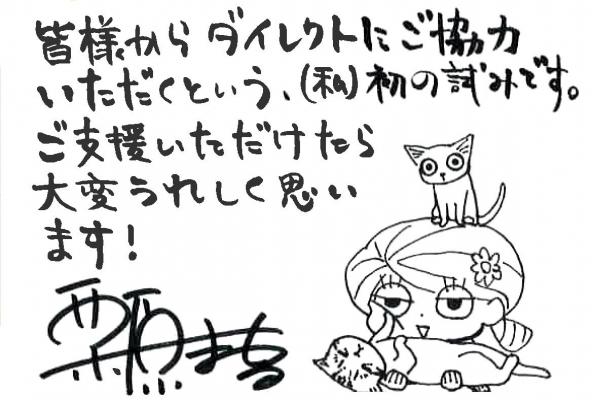 皆様からダイレクトにご協力
いただくという、(私)初の試みです。
ご支援いただけたら
大変うれしく思い
ます!
栗原まもる